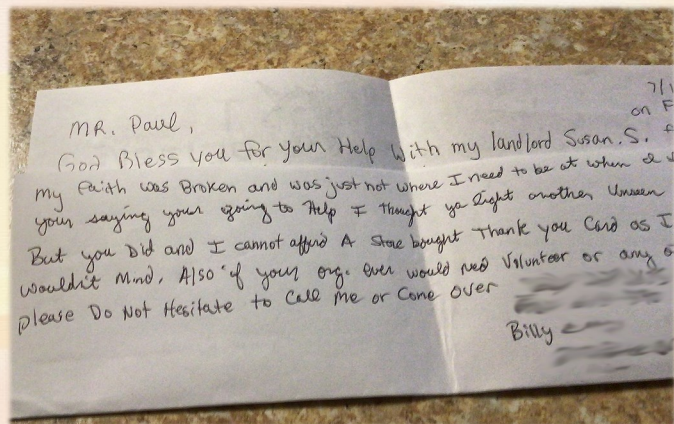 7/1
on F
MR. Paul,
God Bless you for your Help With my landlord Susan. S.
my faith was Broken and was just not where I need to be at when I
your saying your going to Help I thought ya Right another Unseen
But you Did and I cannot afford A Store bought Thank you Card as I
wouldn't Mind, Also if your org. ever would need Volunteer or any
please Do Not Hesitate to Call Me or Come over
Billy